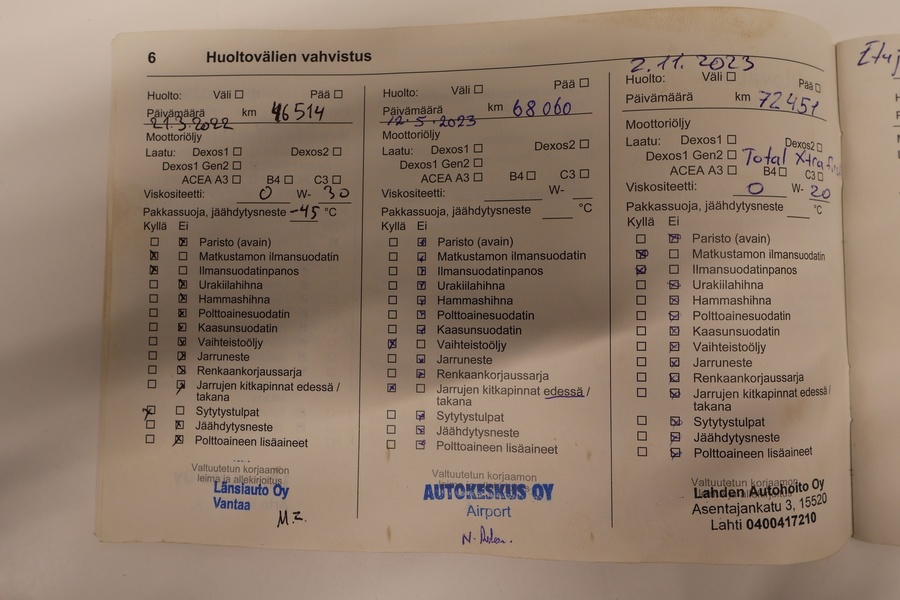 6 Huoltovälien vahvistus
Huolto: Väli ☐ Pää ☐
Päivämäärä km 46514
21.3.2022
Moottoriöljy
Laatu: Dexos1 ☐ Dexos2 ☐
Dexos1 Gen2 ☐
ACEA A3 ☐ B4 ☐ C3 ☐
Viskositeetti: 0 W- 30
Pakkassuoja, jäähdytysneste -45 °C
Kyllä Ei
☐ ☒ Paristo (avain)
☒ ☐ Matkustamon ilmansuodatin
☒ ☐ Ilmansuodatinpanos
☐ ☒ Urakiilahihna
☐ ☒ Hammashihna
☐ ☒ Polttoainesuodatin
☐ ☒ Kaasunsuodatin
☐ ☒ Vaihteistoöljy
☐ ☒ Jarruneste
☐ ☒ Renkaankorjaussarja
☐ ☒ Jarrujen kitkapinnat edessä /
takana
☒ ☐ Sytytystulpat
☐ ☒ Jäähdytysneste
☐ ☒ Polttoaineen lisäaineet
Valtuutetun korjaamon
leima ja allekirjoitus
Länsiauto Oy
Vantaa
M.Z.
Huolto: Väli ☐ Pää ☐
Päivämäärä km 68060
12.5.2023
Moottoriöljy
Laatu: Dexos1 ☐ Dexos2 ☐
Dexos1 Gen2 ☐
ACEA A3 ☐ B4 ☐ C3 ☐
Viskositeetti: W-
Pakkassuoja, jäähdytysneste °C
Kyllä Ei
☐ ☒ Paristo (avain)
☐ ☒ Matkustamon ilmansuodatin
☐ ☒ Ilmansuodatinpanos
☐ ☒ Urakiilahihna
☐ ☒ Hammashihna
☐ ☒ Polttoainesuodatin
☐ ☒ Kaasunsuodatin
☒ ☐ Vaihteistoöljy
☐ ☒ Jarruneste
☐ ☒ Renkaankorjaussarja
☒ ☐ Jarrujen kitkapinnat edessä /
takana
☐ ☒ Sytytystulpat
☐ ☒ Jäähdytysneste
☐ ☒ Polttoaineen lisäaineet
Valtuutetun korjaamon
leima ja allekirjoitus
AUTOKESKUS OY
Airport
2.11.2023
Huolto: Väli ☐ Pää ☐
Päivämäärä km 72451
Moottoriöljy
Laatu: Dexos1 ☐ Dexos2 ☐
Dexos1 Gen2 ☐ Total Xtra
ACEA A3 ☐ B4 ☐ C3 ☐
Viskositeetti: 0 W- 20
Pakkassuoja, jäähdytysneste °C
Kyllä Ei
☐ ☒ Paristo (avain)
☒ ☐ Matkustamon ilmansuodatin
☒ ☐ Ilmansuodatinpanos
☐ ☒ Urakiilahihna
☐ ☒ Hammashihna
☐ ☒ Polttoainesuodatin
☐ ☒ Kaasunsuodatin
☐ ☒ Vaihteistoöljy
☐ ☒ Jarruneste
☐ ☒ Renkaankorjaussarja
☐ ☒ Jarrujen kitkapinnat edessä /
takana
☐ ☒ Sytytystulpat
☐ ☒ Jäähdytysneste
☐ ☒ Polttoaineen lisäaineet
Valtuutetun korjaamon
Lahden Autohoito Oy
Asentajankatu 3, 15520
Lahti 0400417210